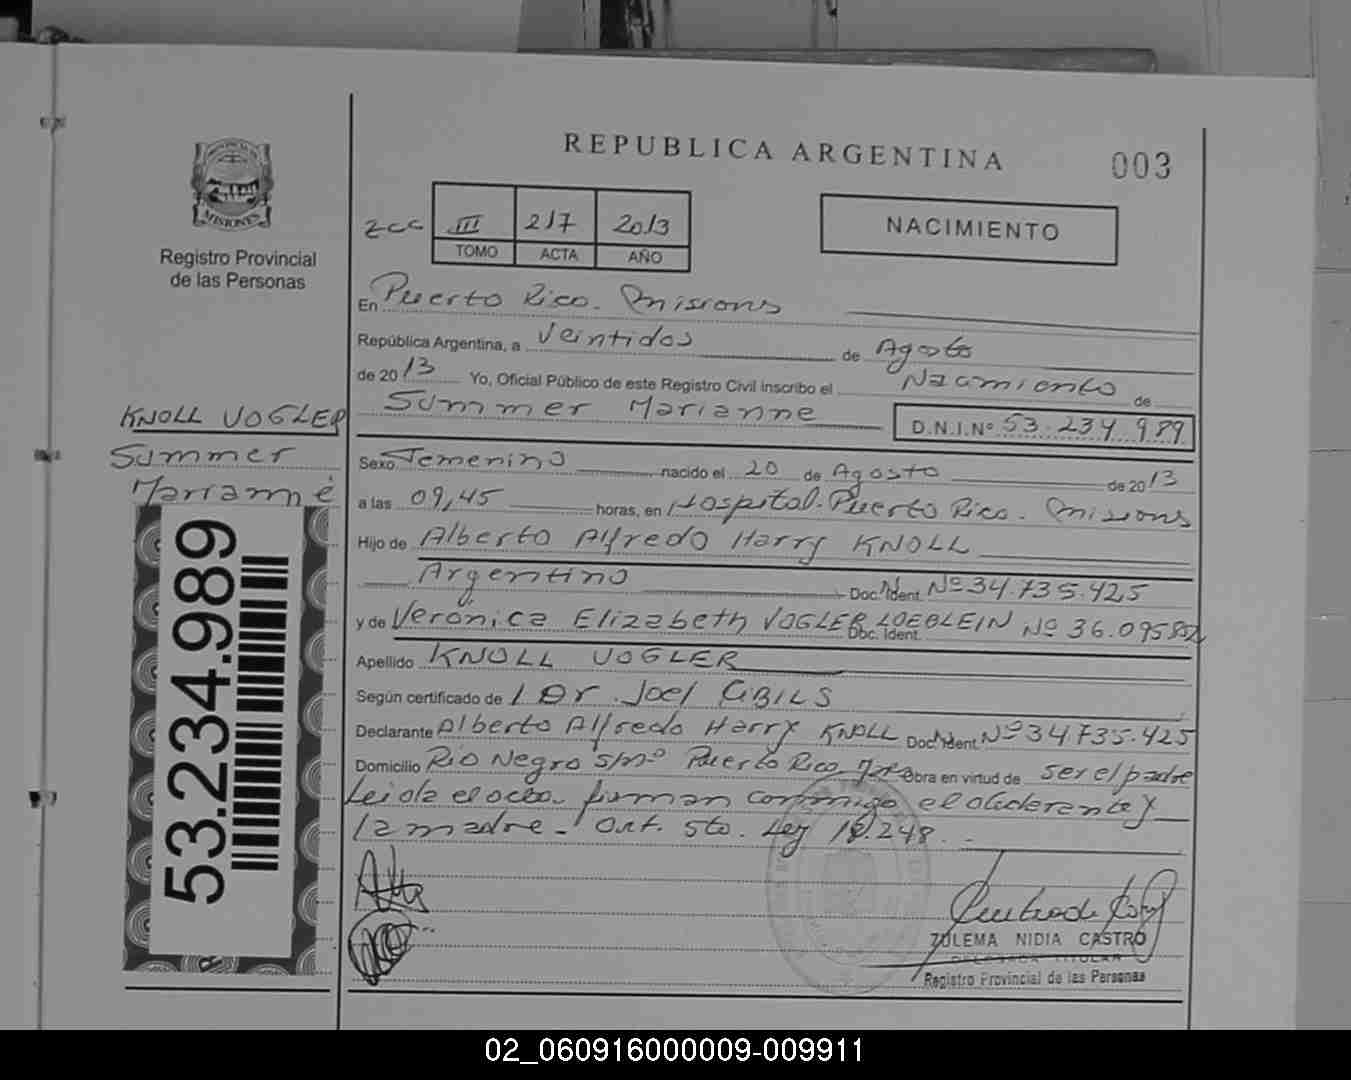 REPUBLICA ARGENTINA
003
PROVINCIA DE
MISIONES
Registro Provincial
de las Personas
III 217 2013
TOMO ACTA AÑO
NACIMIENTO
En Puerto Rico. Misions
República Argentina, a Veintidos de Agosto
de 2013 Yo, Oficial Público de este Registro Civil inscribo el Nacimiento de
Summer Marianne D.N.I.Nº 53.234.989
KNOLL VOGLER
Summer
Marianne
53.234.989
Sexo Femenino nacido el 20 de Agosto de 2013
a las 09,45 horas, en Hospital. Puerto Rico. Misions
Hijo de Alberto Alfredo Harry KNOLL
Argentino Doc. Ident. Nº 34.735.425
y de Verónica Elizabeth VOGLER LOEBLEIN Doc. Ident. Nº 36.095.852
Apellido KNOLL VOGLER
Según certificado de Dr. Joel CIBILS
Declarante Alberto Alfredo Harry KNOLL Doc. Ident. Nº 34735.425
Domicilio Rio Negro s/nº Puerto Rico Obra en virtud de ser el padre
Leida el acta firman conmigo el declarante y
la madre. Art. 5to. Ley 18.248.
ZULEMA NIDIA CASTRO
DELEGADA TITULAR
Registro Provincial de las Personas
02_060916000009-009911